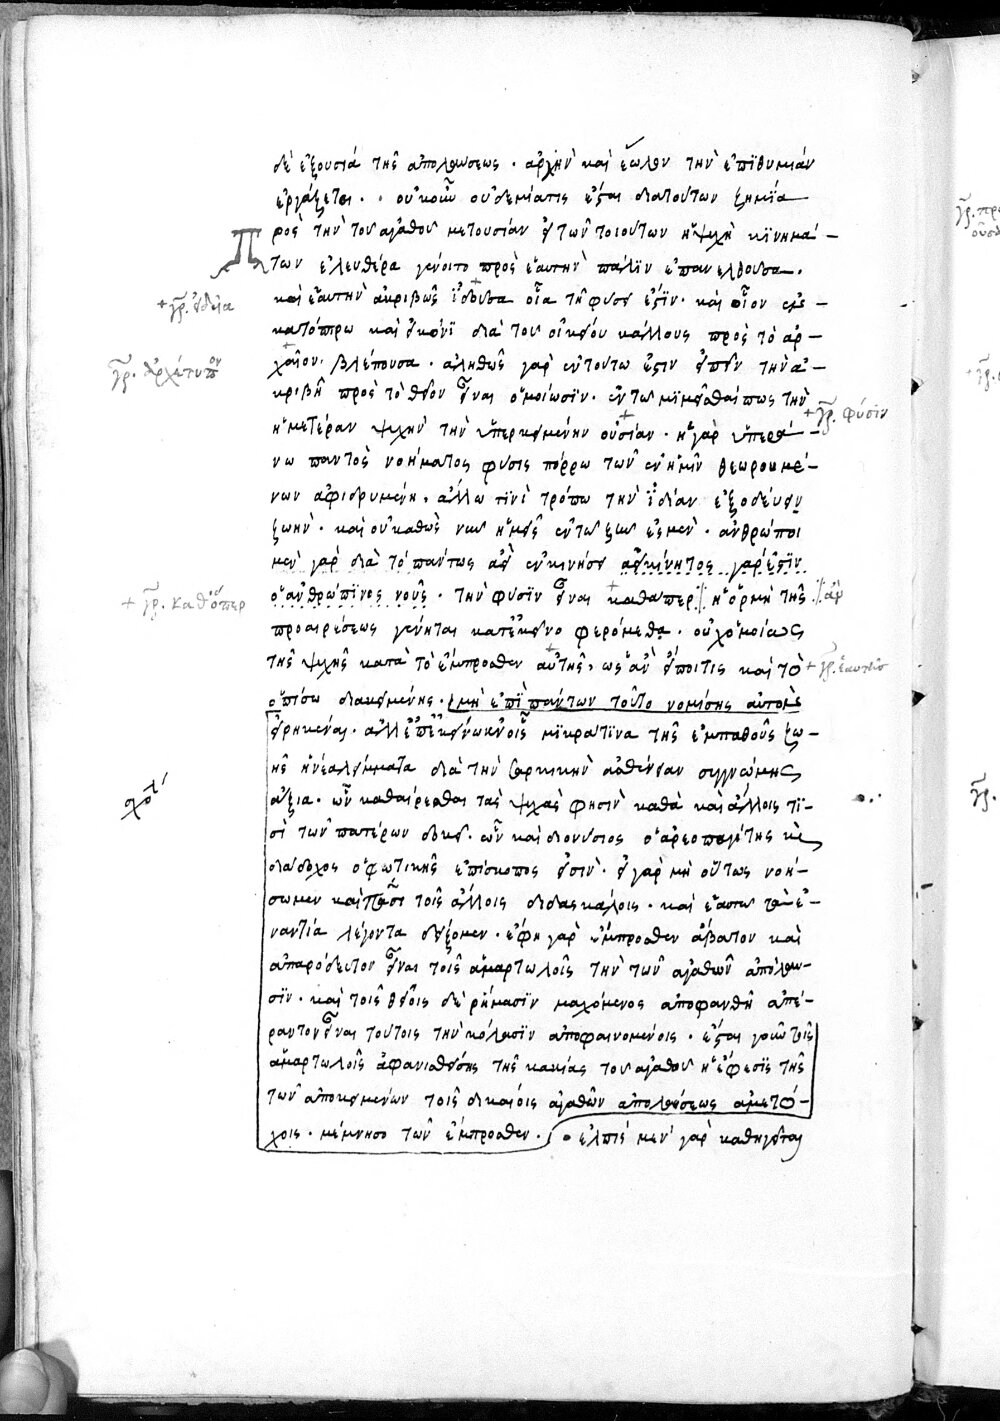 δὲ ἐξουσία τῆς ἀπολαύσεως · ἀργὴν καὶ ἕωλον τὴν ἐπϊθυμιάν
ἐργάζεται · · οὐκοῦν οὐδεμίατις ἔσται διατούτων ζημΐα
πρὸς τὴν τοῦ ἀγαθοῦ μετουσίαν εἰ τῶν τοιούτων ἡ ψυχὴ κϊνημά –
των ἐλευθέρα γένοιτο πρὸς ἑαυτὴν πάλϊν ἐπανελθοῦσα ·
+ γρ. εἰδεῖα
καὶ ἑαυτὴν ἀκριβῶς ἰδοῦσα οἵα τῆ φύσει ἐστϊν · καὶ οἷον ἐν –
κατόπτρω καὶ εἰκόνϊ διὰ τοῦ οἰκείου κάλλους πρὸς τὸ ἀρ –
γρ. ἀρχέτυπον
χαῖον · βλέπουσα · ἀληθῶς γὰρ ἐντούτω ἔστιν εἰπεῖν τὴν ἀ –
κριβῆ πρὸς τὸ θεῖον εἶναι ὁμοίωσϊν · ἐν τῶ μϊμεῖσθαί πως τὴν
ἡμετέραν ψυχὴν τὴν ὑπερκειμένην οὐσίαν · ἡ γὰρ ὑπερά –
+ γρ. φύσϊν
νω παντὸς νοήματος φύσις πόρρω τῶν ἐν ἡμῖν θεωρουμέ –
νων ἀφιδρυμένη · ἄλλω τϊνὶ τρόπω τὴν ἰδίαν ἐξοδεύει
ζωὴν · καὶ οὐ καθὼς νῦν ἡμεῖς ἐν τῶ ζῆν ἐσμεν · ἄνθρωποι
μεν γὰρ διὰ τὸ πάντως ἀεὶ ἐν κινήσει ἀεικίνητος γάρ ἐστϊν
ὁ ἀνθρώπϊνος νοῦς · τὴν φύσϊν εἶναι καθάπερ ἡ ὁρμὴ τῆς
+ γρ. καθ᾽ ὅπερ
ἂν
προαιρέσεως γένηται κατ᾽ ἐκεῖνο φερόμεθα · οὐχ ὁμοίως
τῆς ψυχῆς κατὰ τὸ ἔμπροσθεν αὐτῆς, ὡς ἂν εἴποι τις καὶ τὸ
+ γρ. ἑαυτῆς
ὀπίσω διακειμένης · μὴ ἐπϊ πάντων τοῦτο νομίσης αὐτὸν
εἰρηκέναι · ἀλλ᾽ ἐπ᾽ ἐκείνων οἷς μϊκρά τϊνα τῆς ἐμπαθοῦς ζω –
ῆς διὰ τὴν σαρκικὴν ἀσθένειαν συγγνώμης
ἄξια · ὧν καθαίρεσθαι τὰς ψυχάς φησὶν καθὰ καὶ ἄλλοις τϊ –
σὶ τῶν πατέρων δοκεῖ · ὧν καὶ διονύσιος ὁ ἀρεοπαγίτης καὶ
διάδοχος ὁ φωτικῆς ἐπίσκοπος εἰσιν · εἰ γὰρ μὴ οὕτως νοή –
σωμεν καὶ πᾶσι τοῖς ἄλλοις διδασκάλοις · καὶ ἑαυτῶ τὰ ἐ –
ναντία λέγοντα δείξομεν · ἔφη γὰρ ἔμπροσθεν ἄβατον καὶ
ἀπαρόδευτον εἶναι τοῖς ἁμαρτωλοῖς τὴν τῶν ἀγαθῶν ἀπόλαυ –
σϊν · καὶ τοῖς θείοις δὲ ῥήμασϊν μαχόμενος ἀποφανθῆ ἀπέ –
ραντον εἶναι τούτοις τὴν κόλασϊν ἀποφαινομένοις · ἔσται γοῦν τοῖς
ἁμαρτωλοῖς ἀφανισθείσης τῆς κακίας τοῦ ἀγαθοῦ ἡ ἔφεσϊς τῆς
τῶν ἀποκειμένων τοῖς δικαίοις ἀγαθῶν ἀπολαύσεως ἀμετό –
χοις · μέμνησο τῶν ἔμπροσθεν · ἐλπὶς μὲν γὰρ καθηγεῖται
σχόλ